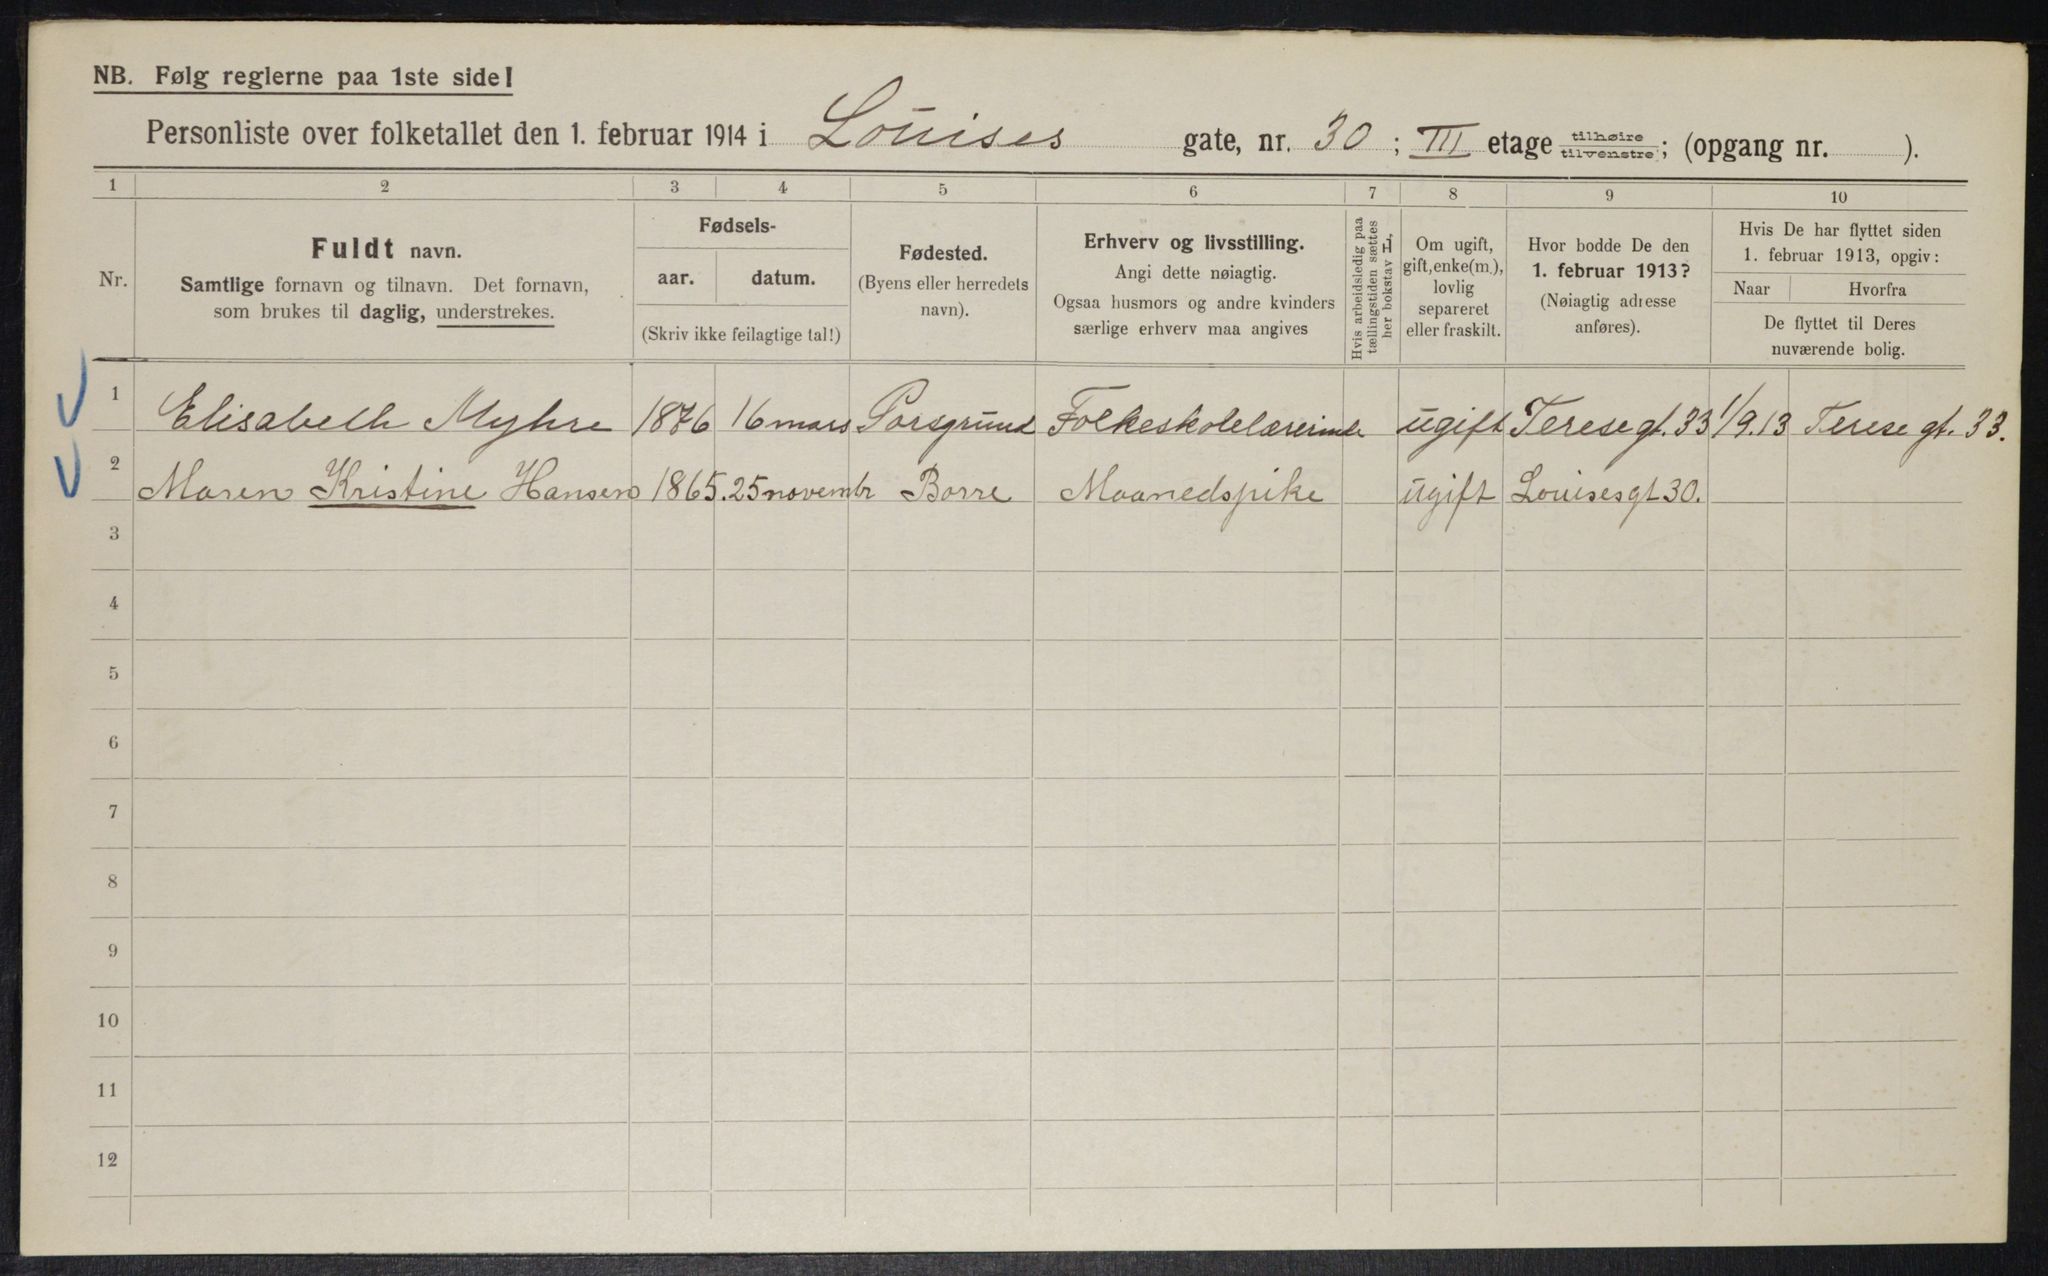 NB. Følg reglerne paa 1ste side!
Personliste over folketallet den 1. februar 1914 i Louises gate, nr. 30 ; III etage tilhøire tilvenstre; (opgang nr. ).
1 2 3 4 5 6 7 8 9 10
Nr.
Fuldt navn.
Samtlige fornavn og tilnavn. Det fornavn,
som brukes til daglig, understrekes.
Fødsels-
aar. datum.
(Skriv ikke feilagtige tal!)
Fødested.
(Byens eller herredets
navn).
Erhverv og livsstilling.
Angi dette nøiagtig.
Ogsaa husmors og andre kvinders
særlige erhverv maa angives
Hvis arbeidsledig paa
tællingstiden sættes
her bokstav L.
Om ugift,
gift, enke(m.),
lovlig
separeret
eller fraskilt.
Hvor bodde De den
1. februar 1913?
(Nøiagtig adresse
anføres).
Hvis De har flyttet siden
1. februar 1913, opgiv:
Naar Hvorfra
De flyttet til Deres
nuværende bolig.
1 Elisabeth Myhre 1876 16 mars Porsgrund Folkeskolelærerinde ugift Terese gt. 33 1/9.13 Terese gt. 33.
2 Maren Kristine Hansen 1865. 25 novembr Borre Maanedspike ugift Louisesgt 30.
3
4
5
6
7
8
9
10
11
12